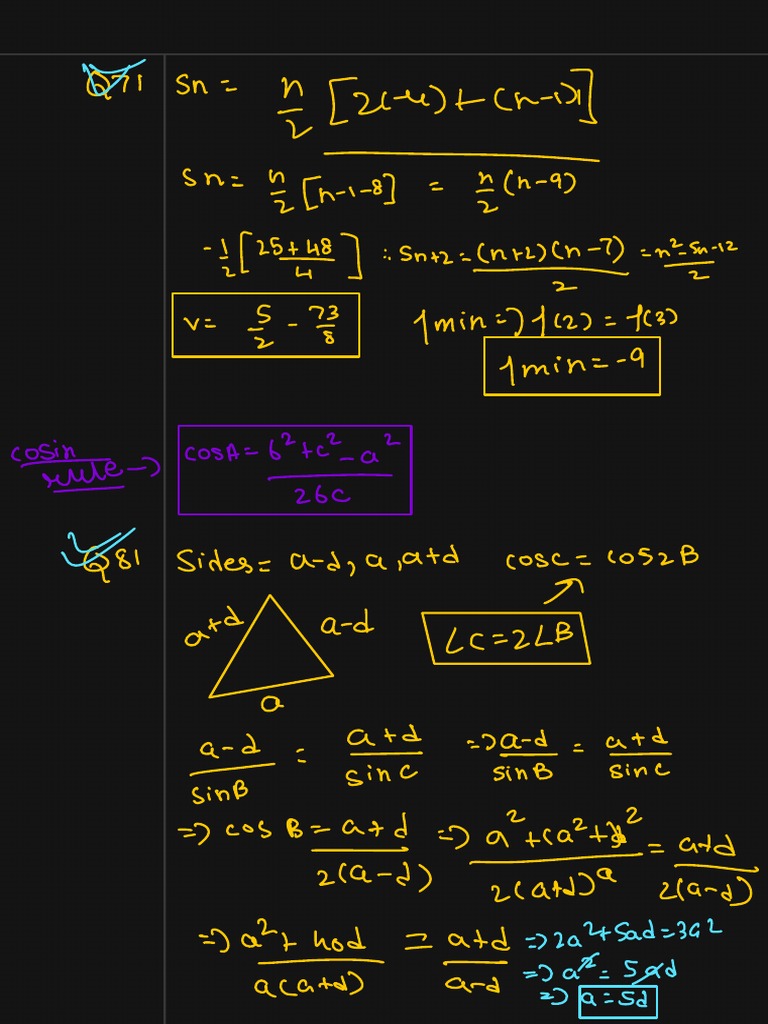 Q71 Sn = n/2 [2(-4) + (n-1)1]
Sn = n/2 [n-1-8] = n/2 (n-9)
-1/2 [25+48/4] ∴ Sn+2 = (n+2)(n-7)/2 = n²-5n-12/2
v = 5/2 - 73/8
fmin => f(2) = f(3)
fmin = -9
cosin
rule -> cosA = b²+c²-a²/2bc
Q81 Sides = a-d, a, a+d cosC = cos2B
a+d a-d
∠C = 2∠B
a
a-d/sinB = a+d/sinC => a-d/sinB = a+d/sinC
=> cos B = a+d/2(a-d) => = a+d/2(a-d)
=> = a+d/a-d => 2a²+5ad = 3a²
=> a² = 5ad
=> a = 5d